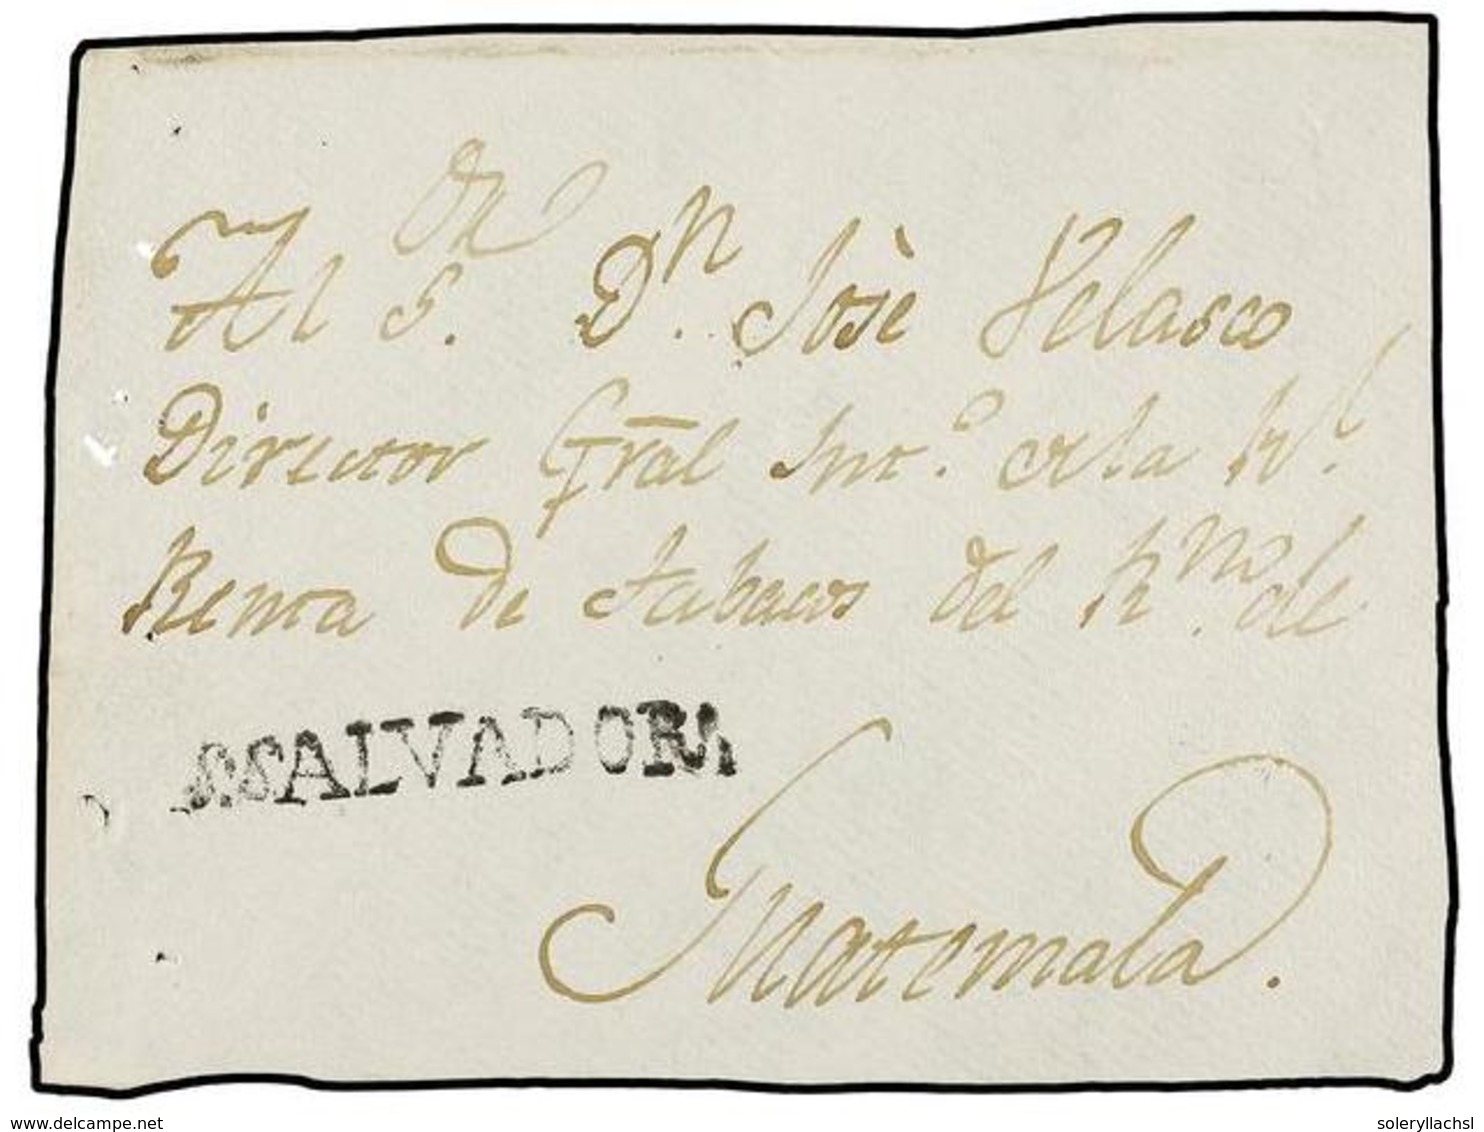 Al S.or Dn. Josè Velasco
Director Grāl Int.o de la Rl.
Renta de Tabacos del R.no de
S.SALVADOR
Guatemala.
www.delcampe.net
soleryllachsl